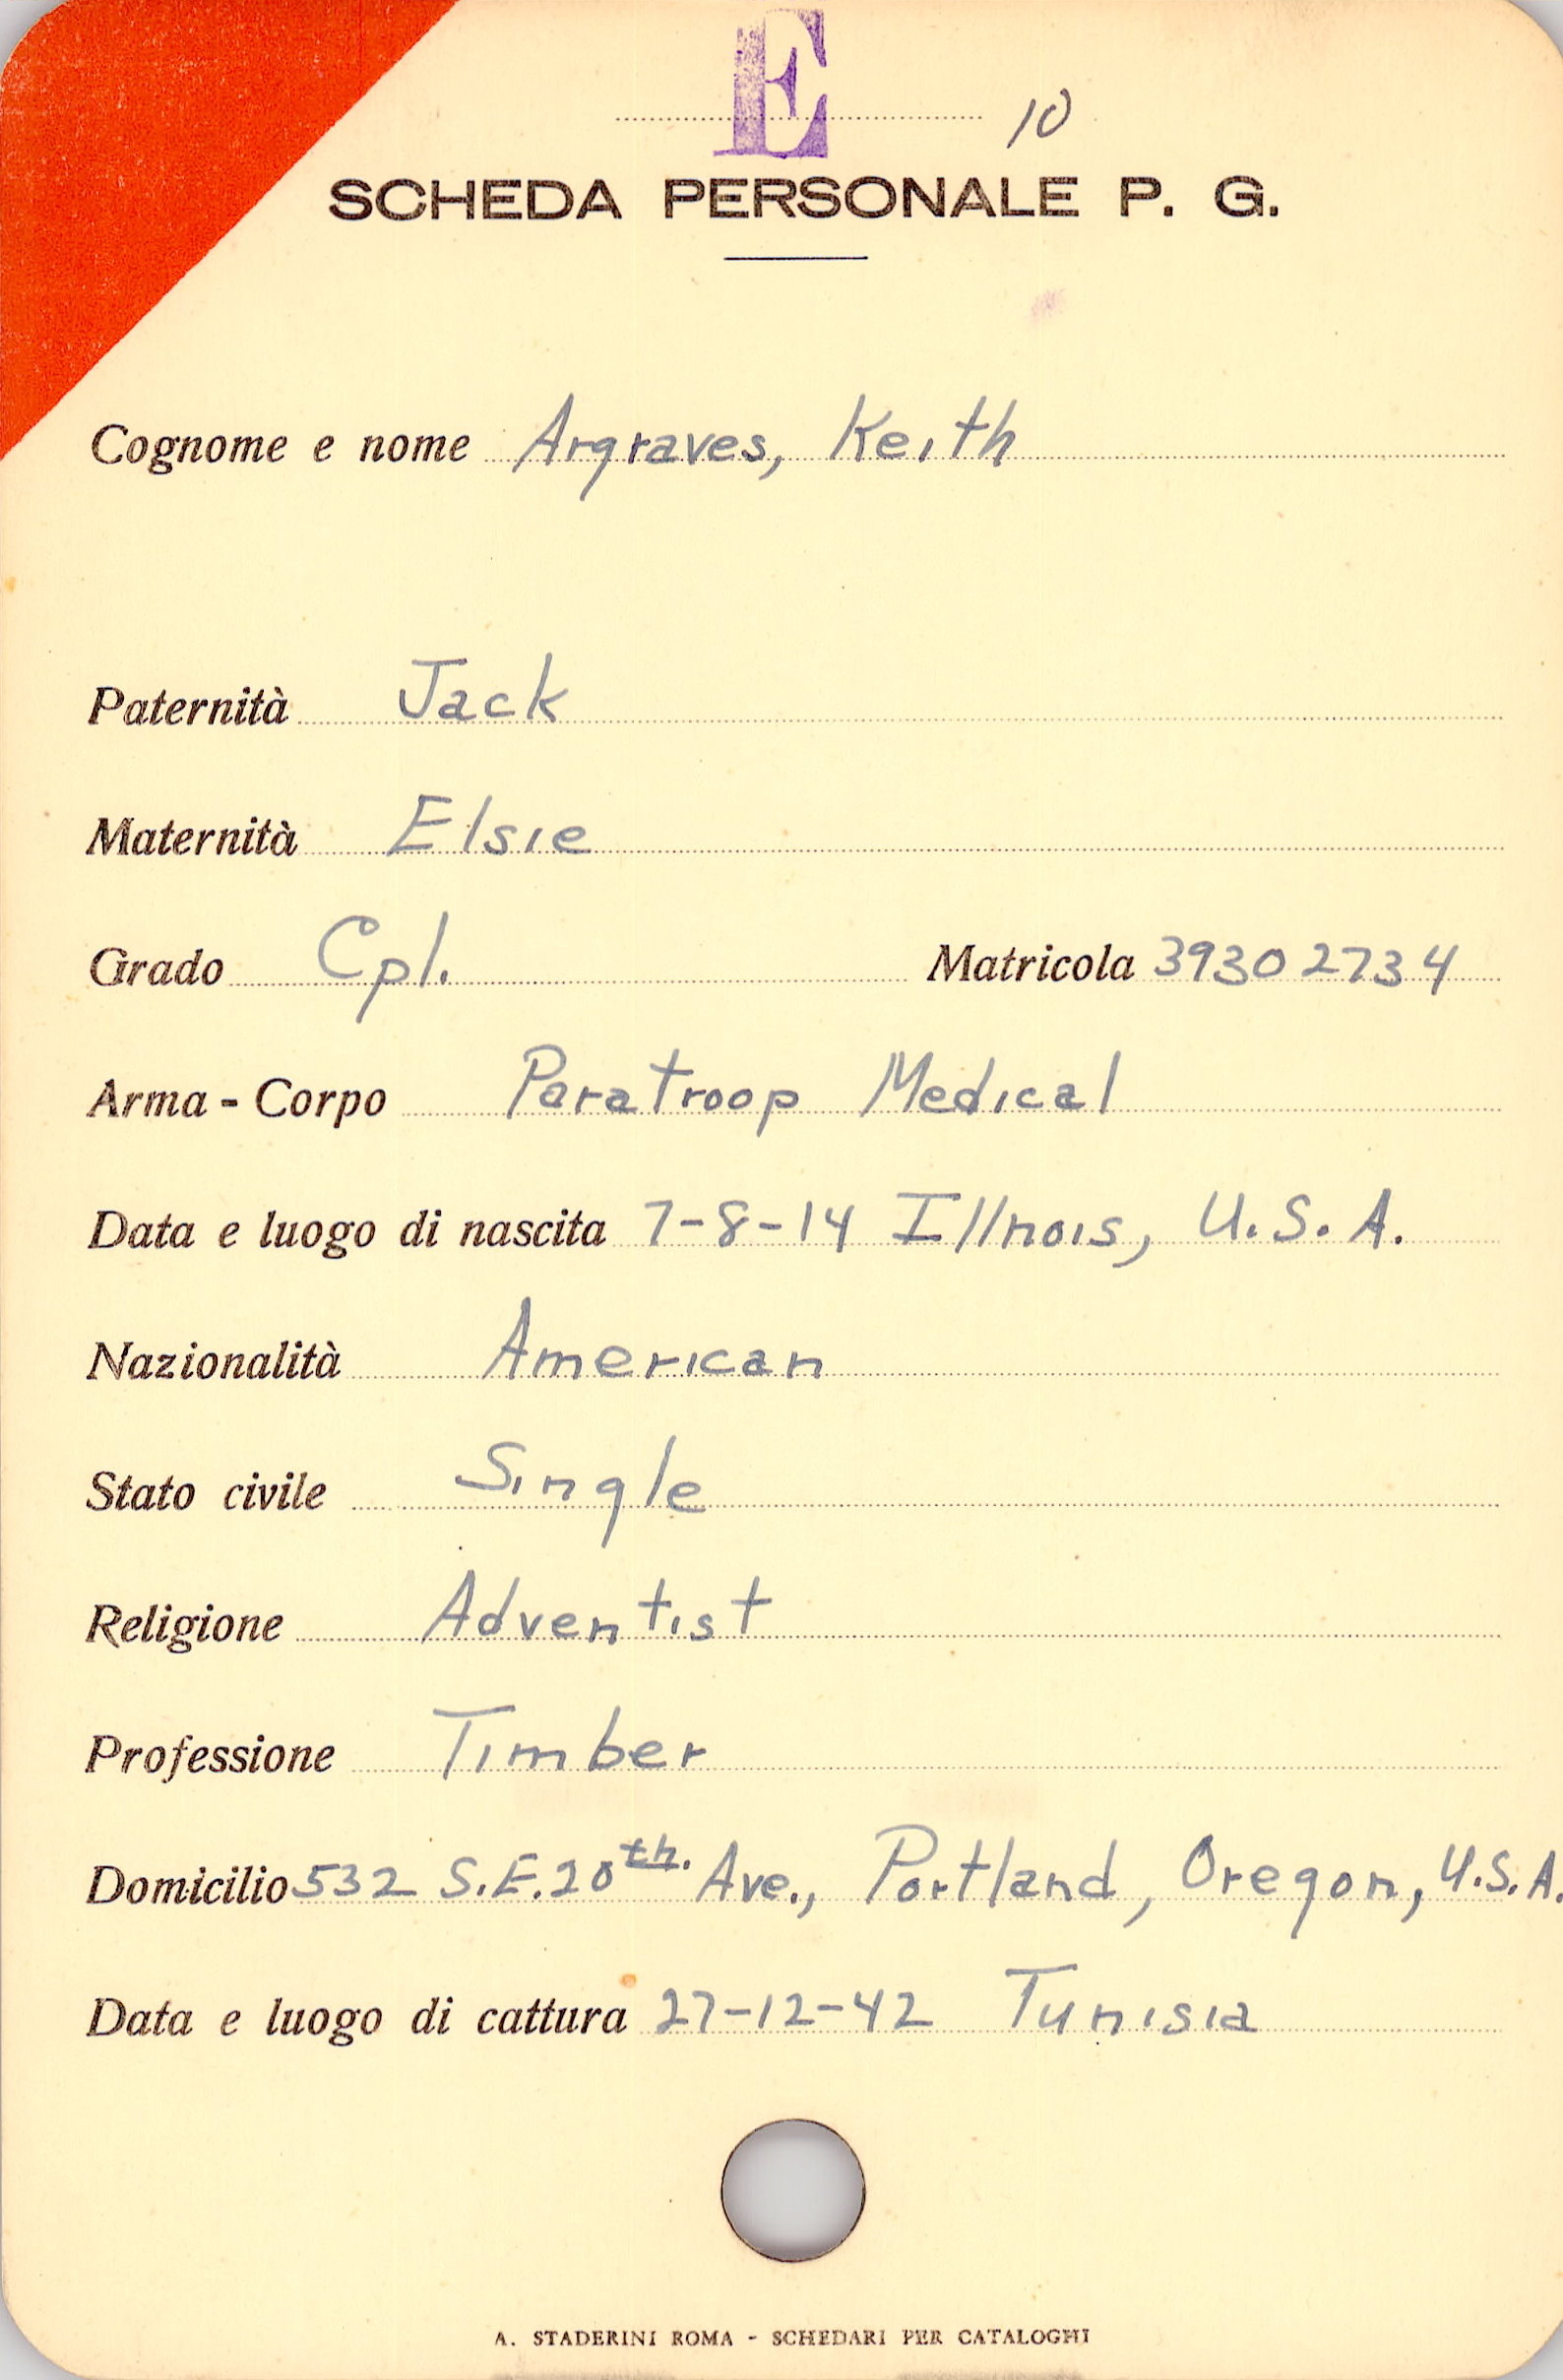 E
10
SCHEDA PERSONALE P. G.
Cognome e nome Argraves, Keith
Paternità Jack
Maternità Elsie
Grado Cpl. Matricola 39302734
Arma - Corpo Paratroop Medical
Data e luogo di nascita 7-8-14 Illnois, U.S.A.
Nazionalità American
Stato civile Single
Religione Adventist
Professione Timber
Domicilio 532 S.E. 20th. Ave., Portland, Oregon, U.S.A.
Data e luogo di cattura 27-12-42 Tunisia
A. STADERINI ROMA - SCHEDARI PER CATALOGHI